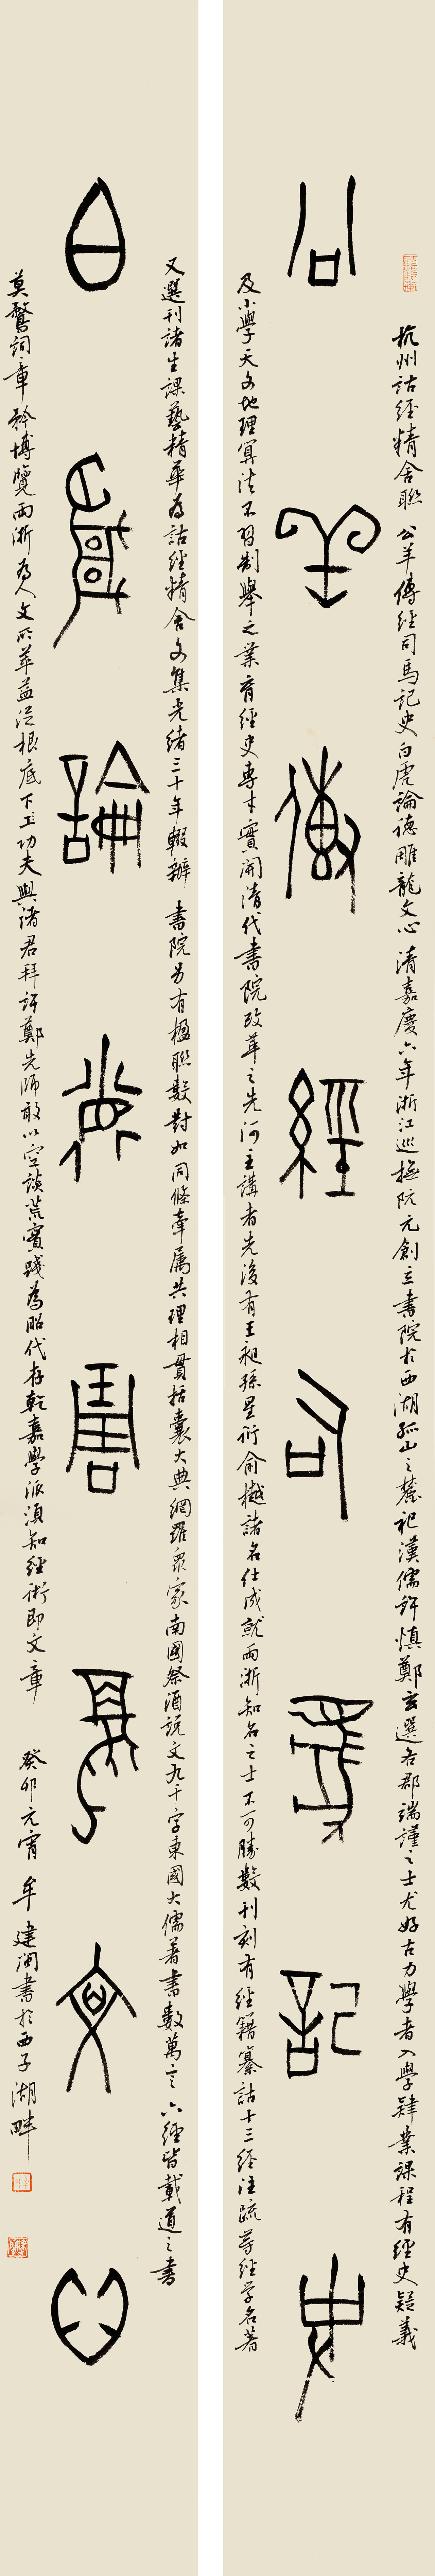 杭州詁經精舍聯 公羊傳經司馬記史白虎論德雕龍文心 清嘉慶六年浙江巡撫阮元創立書院於西湖孤山之麓祀漢儒許慎鄭玄選各郡端謹之士尤好古力學者入學肄業課程有經史疑義
公羊傳經司馬記史
及小學天文地理算法不習制舉之業有經史專才實開清代書院改革之先河主講者先後有王昶孫星衍俞樾諸名仕成就兩浙知名之士不可勝數刊刻有經籍纂詁十三經注疏等經學名著
又選刊諸生課藝精華為詁經精舍文集光緒三十年輟辦 書院另有楹聯數對如同條牽屬共理相貫括囊大典網羅眾家南國祭酒說文九千字東國大儒著書數萬言六經皆載道之書
白虎論德雕龍文心
莫鶩詞章矜博覽兩浙為人文所萃益從根底下工功夫與諸君拜許鄭先師敢以空談荒實踐為昭代存乾嘉學派須知經術即文章 癸卯元宵 牟建閩書於西子湖畔